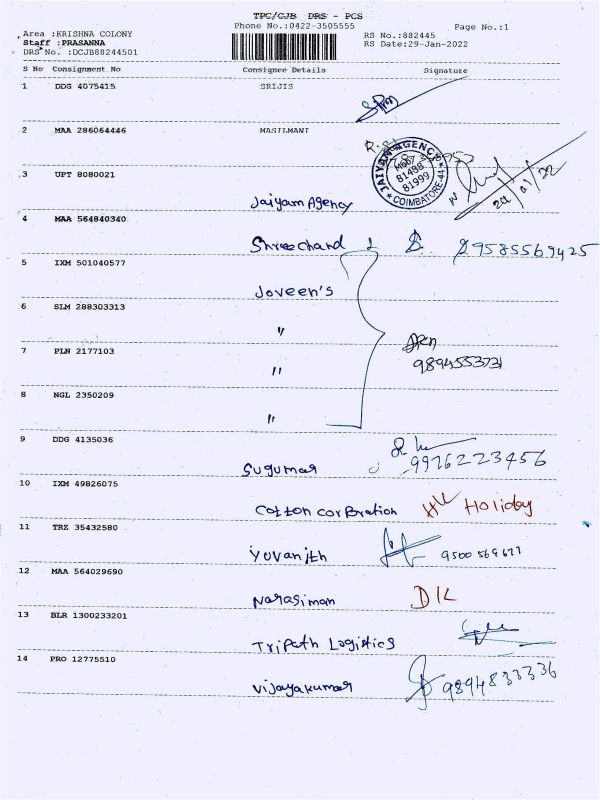 TPC/CJB DRS - PCS
Phone No.:0422-3505555 Page No.:1
Area :KRISHNA COLONY
Staff :PRASANNA
DRS No. :DCJB88244501
RS No.:882445
RS Date:29-Jan-2022
S No Consignment No Consignee Details Signature
1 DDG 4075415 SRIJIS
2 MAA 286064446 MASILMANT
JAIYAM AGENCY
81488
81999
COIMBATORE-44
3 UPT 8080021 Jaiyam Agency
4 MAA 564840340 Shreechand 9585569425
5 IXM 501040577 Joveen's
6 SLM 288303313 "
7 PLN 2177103 "
9894553731
8 NGL 2350209 "
9 DDG 4135036 Sugumar 9976223456
10 IXM 49826075 Cotton corBration Holiday
11 TRZ 35432580 Yuvanjth
12 MAA 564029690 Narasiman DIL
13 BLR 1300233201 Tripath Logistics
14 PRO 12775510 Vijayakumar 9894833336